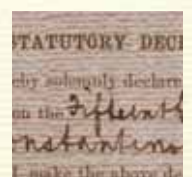 STATUTORY DECL
eby solemnly declare
on the Fifteenth
onstantino
I make the above de